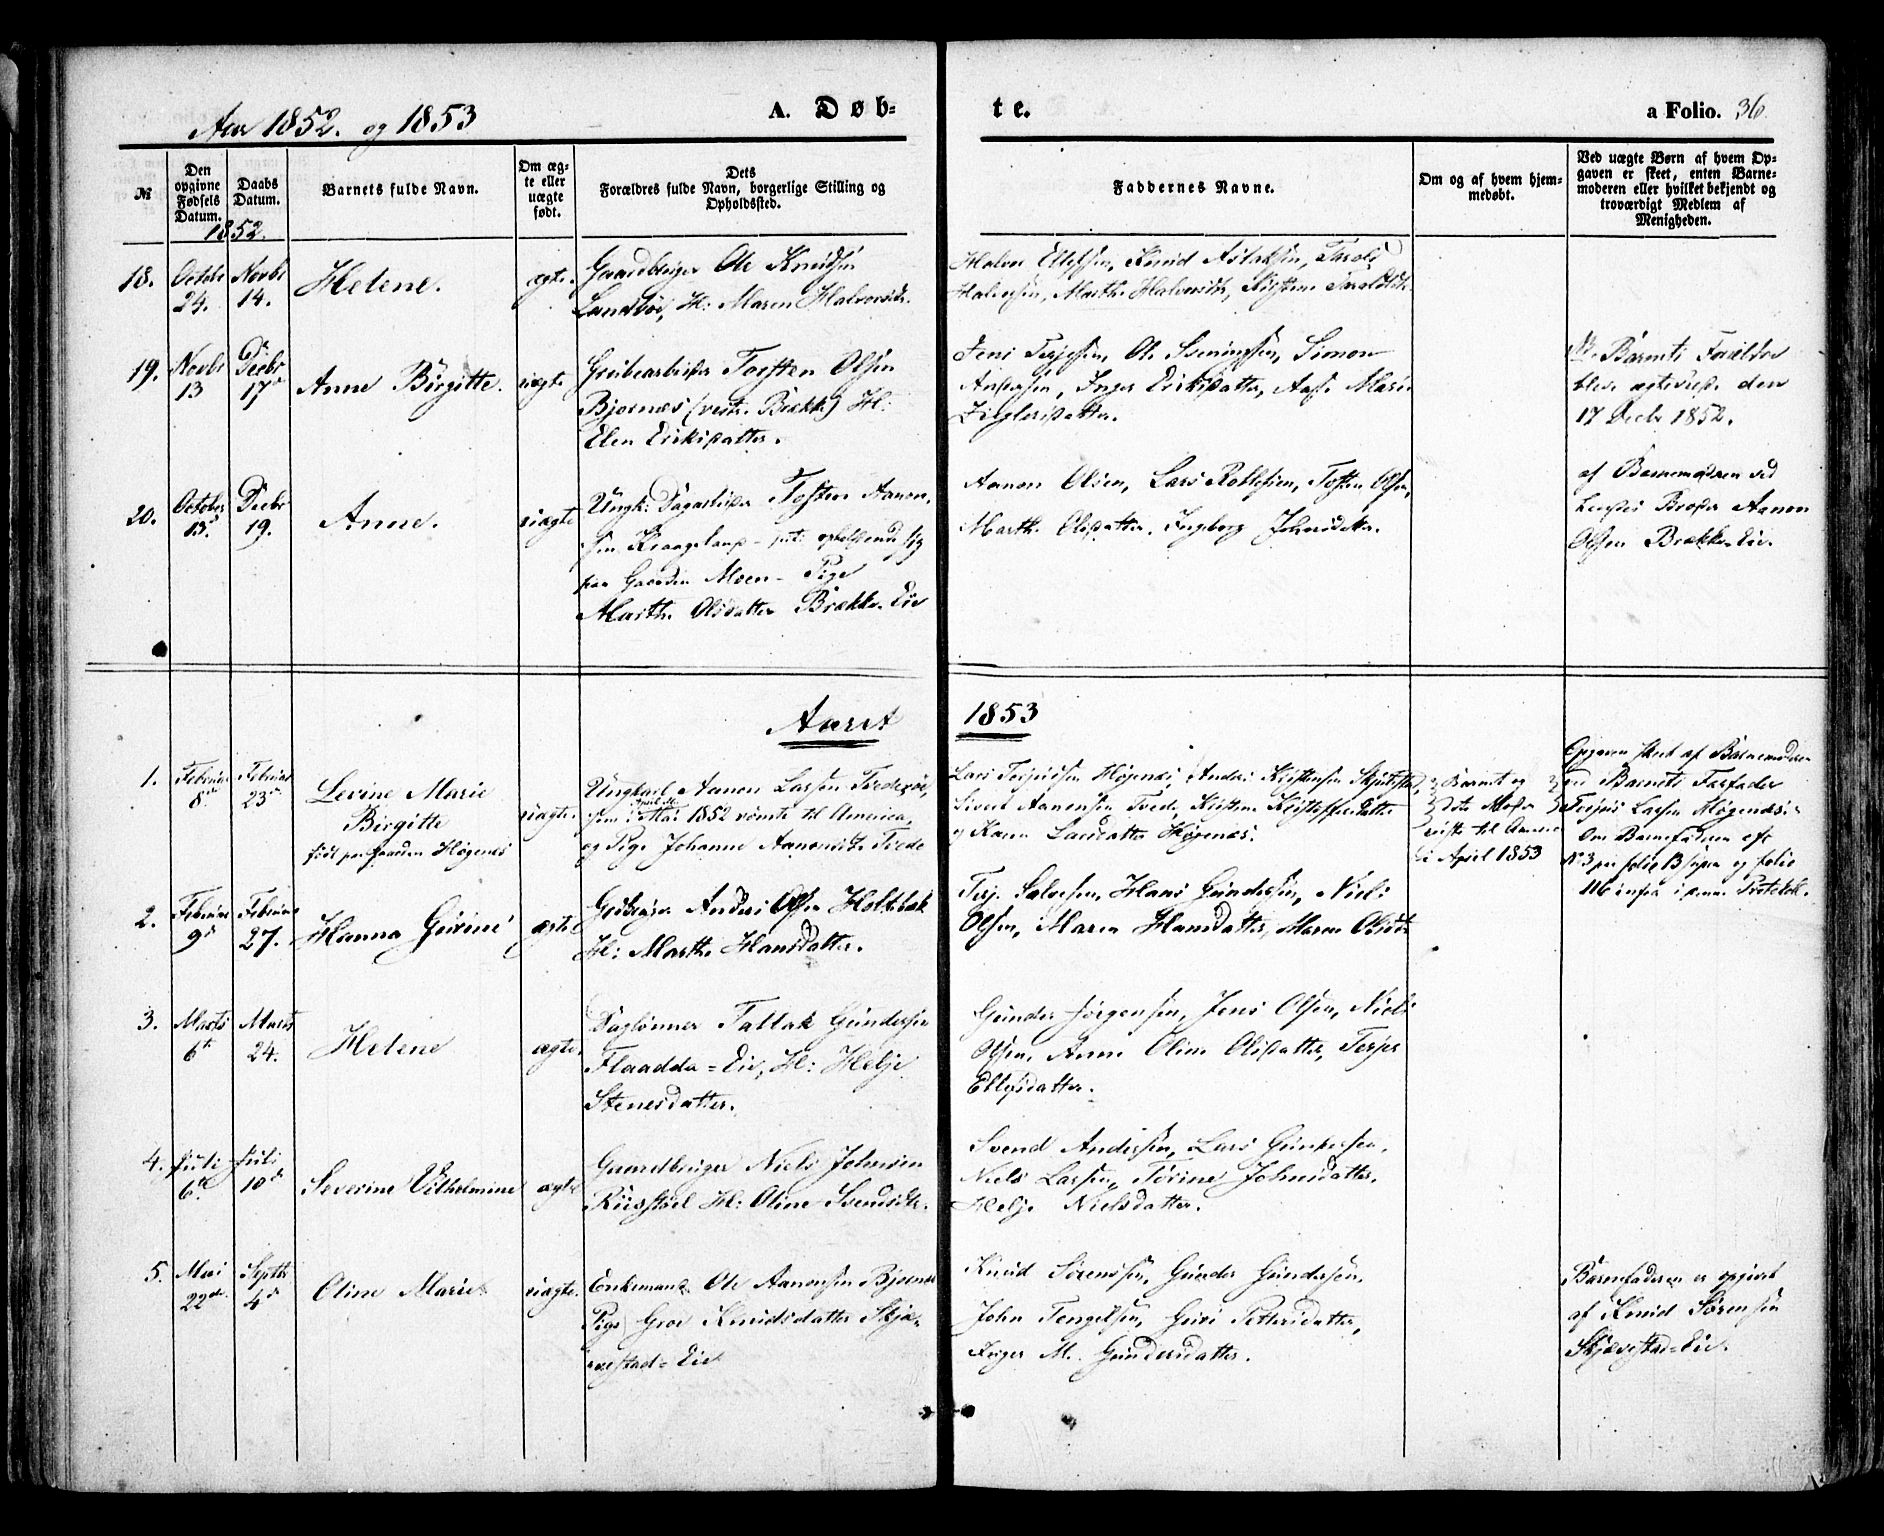 Aar 1852. og 1853
A. Døb-
te.
a Folio. 36.
№
Den opgivne Fødsels Datum.
Daabs Datum.
Barnets fulde Navn.
Om ægte eller uægte født.
Dets
Forældres fulde Navn, borgerlige Stilling og
Opholdssted.
Faddernes Navne.
Om og af hvem hjem-
medøbt.
Ved uægte Børn af hvem Op-
gaven er skeet, enten Barne-
moderen eller hvilket bekjendt og
troværdigt Medlem af
Menigheden.
1852.
18. Octobr 24. Novbr 14. Helene. ægte.
Gaardbruger Ole Knudsen
Landbøe, H: Maren Halvorsdtr.
Halvor Ellefsen, Knud Aslaksen, Tarald
Halvorsen, Marthe Halvorsdtr, Kirstine Taraldsdtr
19. Novbr 13 Decbr 17de Anne Birgitte. uægte
Grubearbeider Torsten Olsen
Bjornæs (vestre Brække) H:
Elen Eriksdatter.
Jens Terjesen, Ole Svenungsen, Simon
Andersen, Inger Eriksdatter, Aase Marie
Zieglersdatter.
Barnets Forældre
bleve ægteviede den
17 Decbr 1852.
20. October 13de Decbr 19. Anne. uægte
Ungk: Dagarbeider Torsten Aanon-
sen Kraagelund - opholdende sig
paa Gaarden Moen - Pige
Marthe Olsdatter Brække-Eie
Aanon Olsen, Lars Roelfsen, Tosten Olsen,
Marthe Olsdatter, Ingeborg Johnsdatter.
af Barnemoderen ved
hendes Broder Aanon
Olsen Brække-Eie.
Aaret 1853
1. Februar 8de Februar 23de Levine Marie
Birgitte
født paa Gaarden Høgenæs
uægte.
Ungkarl Aanon Larsen Tvederøe,
som i April el. Mai 1852 rømte til America,
og Pige Johanne Aanonsdtr Tvede
Lars Terjesen Høgenæs, Anders Kristensen
Sivert Aanonsen Tvede, Kirstine Kristoffersdatter
og Karen Larsdatter Høgenæs.
Barnet og
dets Moder
reiste til America
i April 1853
Opgaven skeet af Barnemoderen
ved Barnets Farfader
Terjus Larsen Høgenæs.
Om Barnefaderen cfr
N° 3 paa folio 13 supra og folio
116 infra i denne Protokol.
2. Februar 9de Februar 27. Hanna Gurine ægte
Gdbruger Anders Olsen Holtebæk
H: Marthe Hansdatter.
Terje Salvesen, Hans Gundersen, Niels
Olsen, Maren Hansdatter, Maren Olsdtr
3. Marts 6te Marts 24. Helene ægte.
Daglønner Tallak Gundersen
Flaadda=Eie, H: Helje
Stenersdatter.
Gunder Jørgensen, Jens Olsen, Niels
Olsen, Anne Oline Olsdatter, Terjer
Ellefsdatter.
4. Juli 6te Juli 10de Severine Vilhelmine ægte
Gaardbruger Niels Johnsen
H: Oline Svendsdtr.
Svend Andersen, Lars Gundersen,
Niels Larsen, Torine Johnsdatter,
Helje Nielsdatter.
5. Mai 22de Septbr 4de Oline Marie uægte.
Enkemand Ole Aanonsen Bjornæs
Pige Groe Knudsdatter Skjæ-
vestad=Eie
Knud Sørensen, Gunder Gundersen,
John Tengelsen, Guri Pettersdatter,
Inger M. Gundersdatter.
Barnefaderen er opgivet
af Knud Sørensen
Skjævestad=Eie.